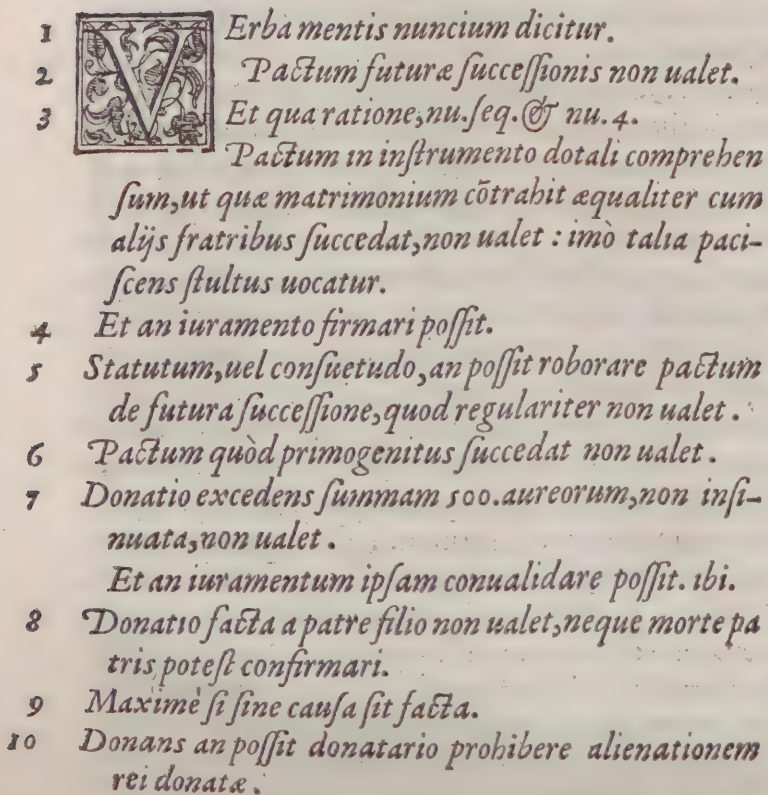 1 VErba mentis nuncium dicitur.
2 Pactum futuræ ſucceſſionis non ualet.
3 Et qua ratione, nu. ſeq. & nu. 4.
Pactum in inſtrumento dotali comprehen
ſum, ut quæ matrimonium cōtrahit æqualiter cum
alijs fratribus ſuccedat, non ualet : imò talia paci-
ſcens ſtultus uocatur.
4 Et an iuramento firmari poſſit.
5 Statutum, uel conſuetudo, an poſſit roborare pactum
de futura ſucceſſione, quod regulariter non ualet.
6 Pactum quòd primogenitus ſuccedat non ualet.
7 Donatio excedens ſummam 500. aureorum, non inſi-
nuata, non ualet.
Et an iuramentum ipſam conualidare poſſit. ibi.
8 Donatio facta a patre filio non ualet, neque morte pa
tris poteſt confirmari.
9 Maximè ſi ſine cauſa ſit facta.
10 Donans an poſſit donatario prohibere alienationem
rei donatæ.